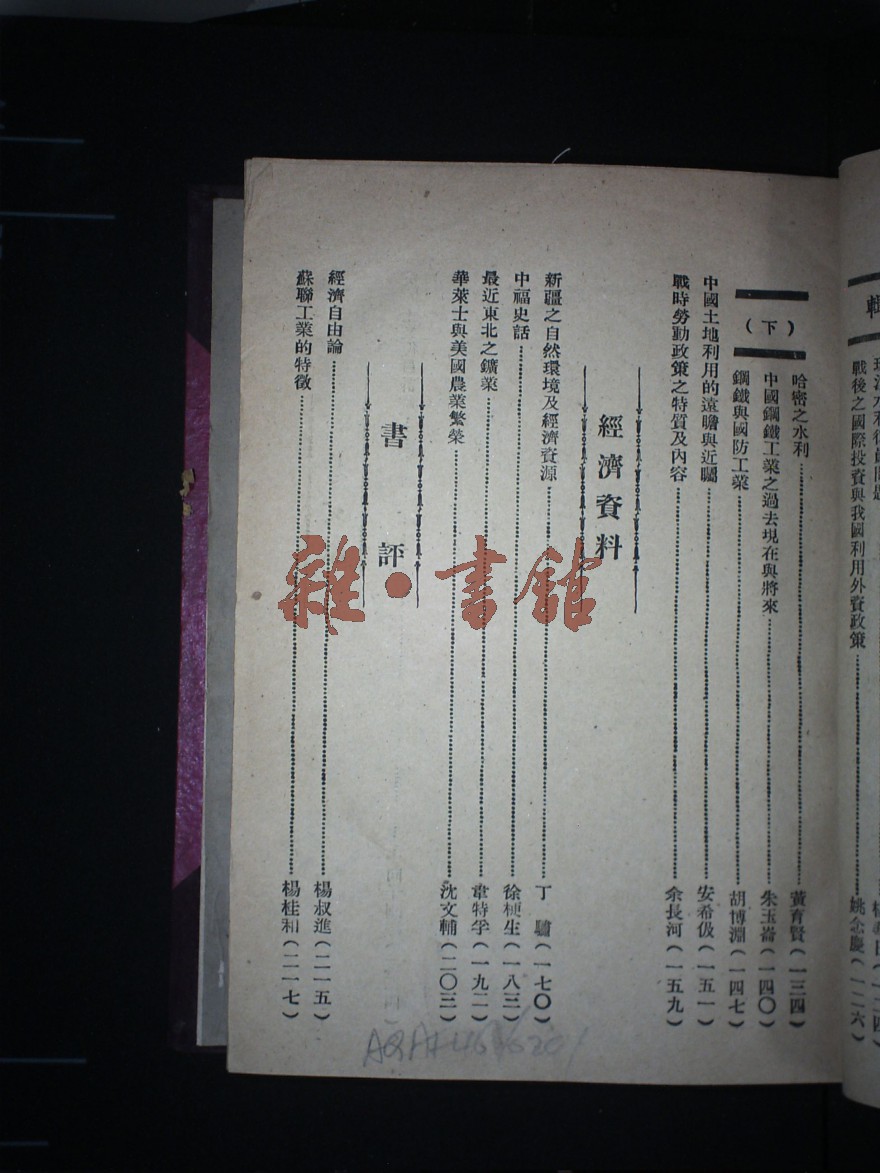 輯
戰後之國際投資與我國利用外資政策 姚念慶(一二六)
(下)
哈密之水利 黃育賢(一三四)
中國鋼鐵工業之過去現在與將來 朱玉崙(一四〇)
鋼鐵與國防工業 胡博淵(一四七)
中國土地利用的遠瞻與近矚 安希伋(一五一)
戰時勞動政策之特質及內容 余長河(一五九)
經濟資料
新疆之自然環境及經濟資源 丁驌(一七〇)
中福史話 徐梗生(一八三)
最近東北之鑛業 韋特孚(一九二)
華萊士與美國農業繁榮 沈文輔(二〇三)
書評
經濟自由論 楊叔進(二一五)
蘇聯工業的特徵 楊桂和(二一七)
雜·書館